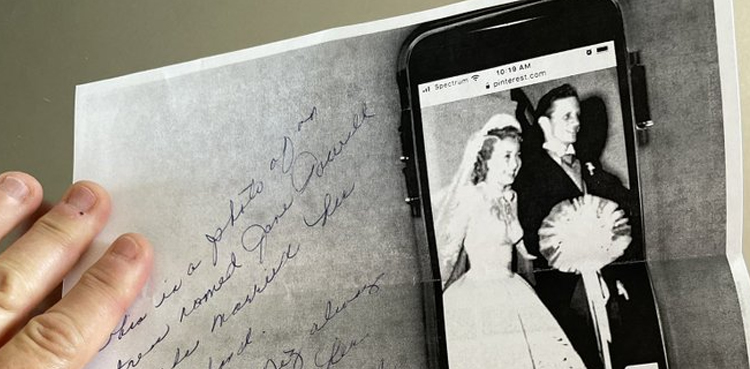 This is a photo of an
tress named Jane Powell
she married her
and.
always
her.
Spectrum
10:19 AM
pinterest.com